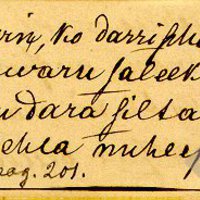 rin, ko darrishu
waru saleek
u dara silta
ehla muhee
pag. 201.